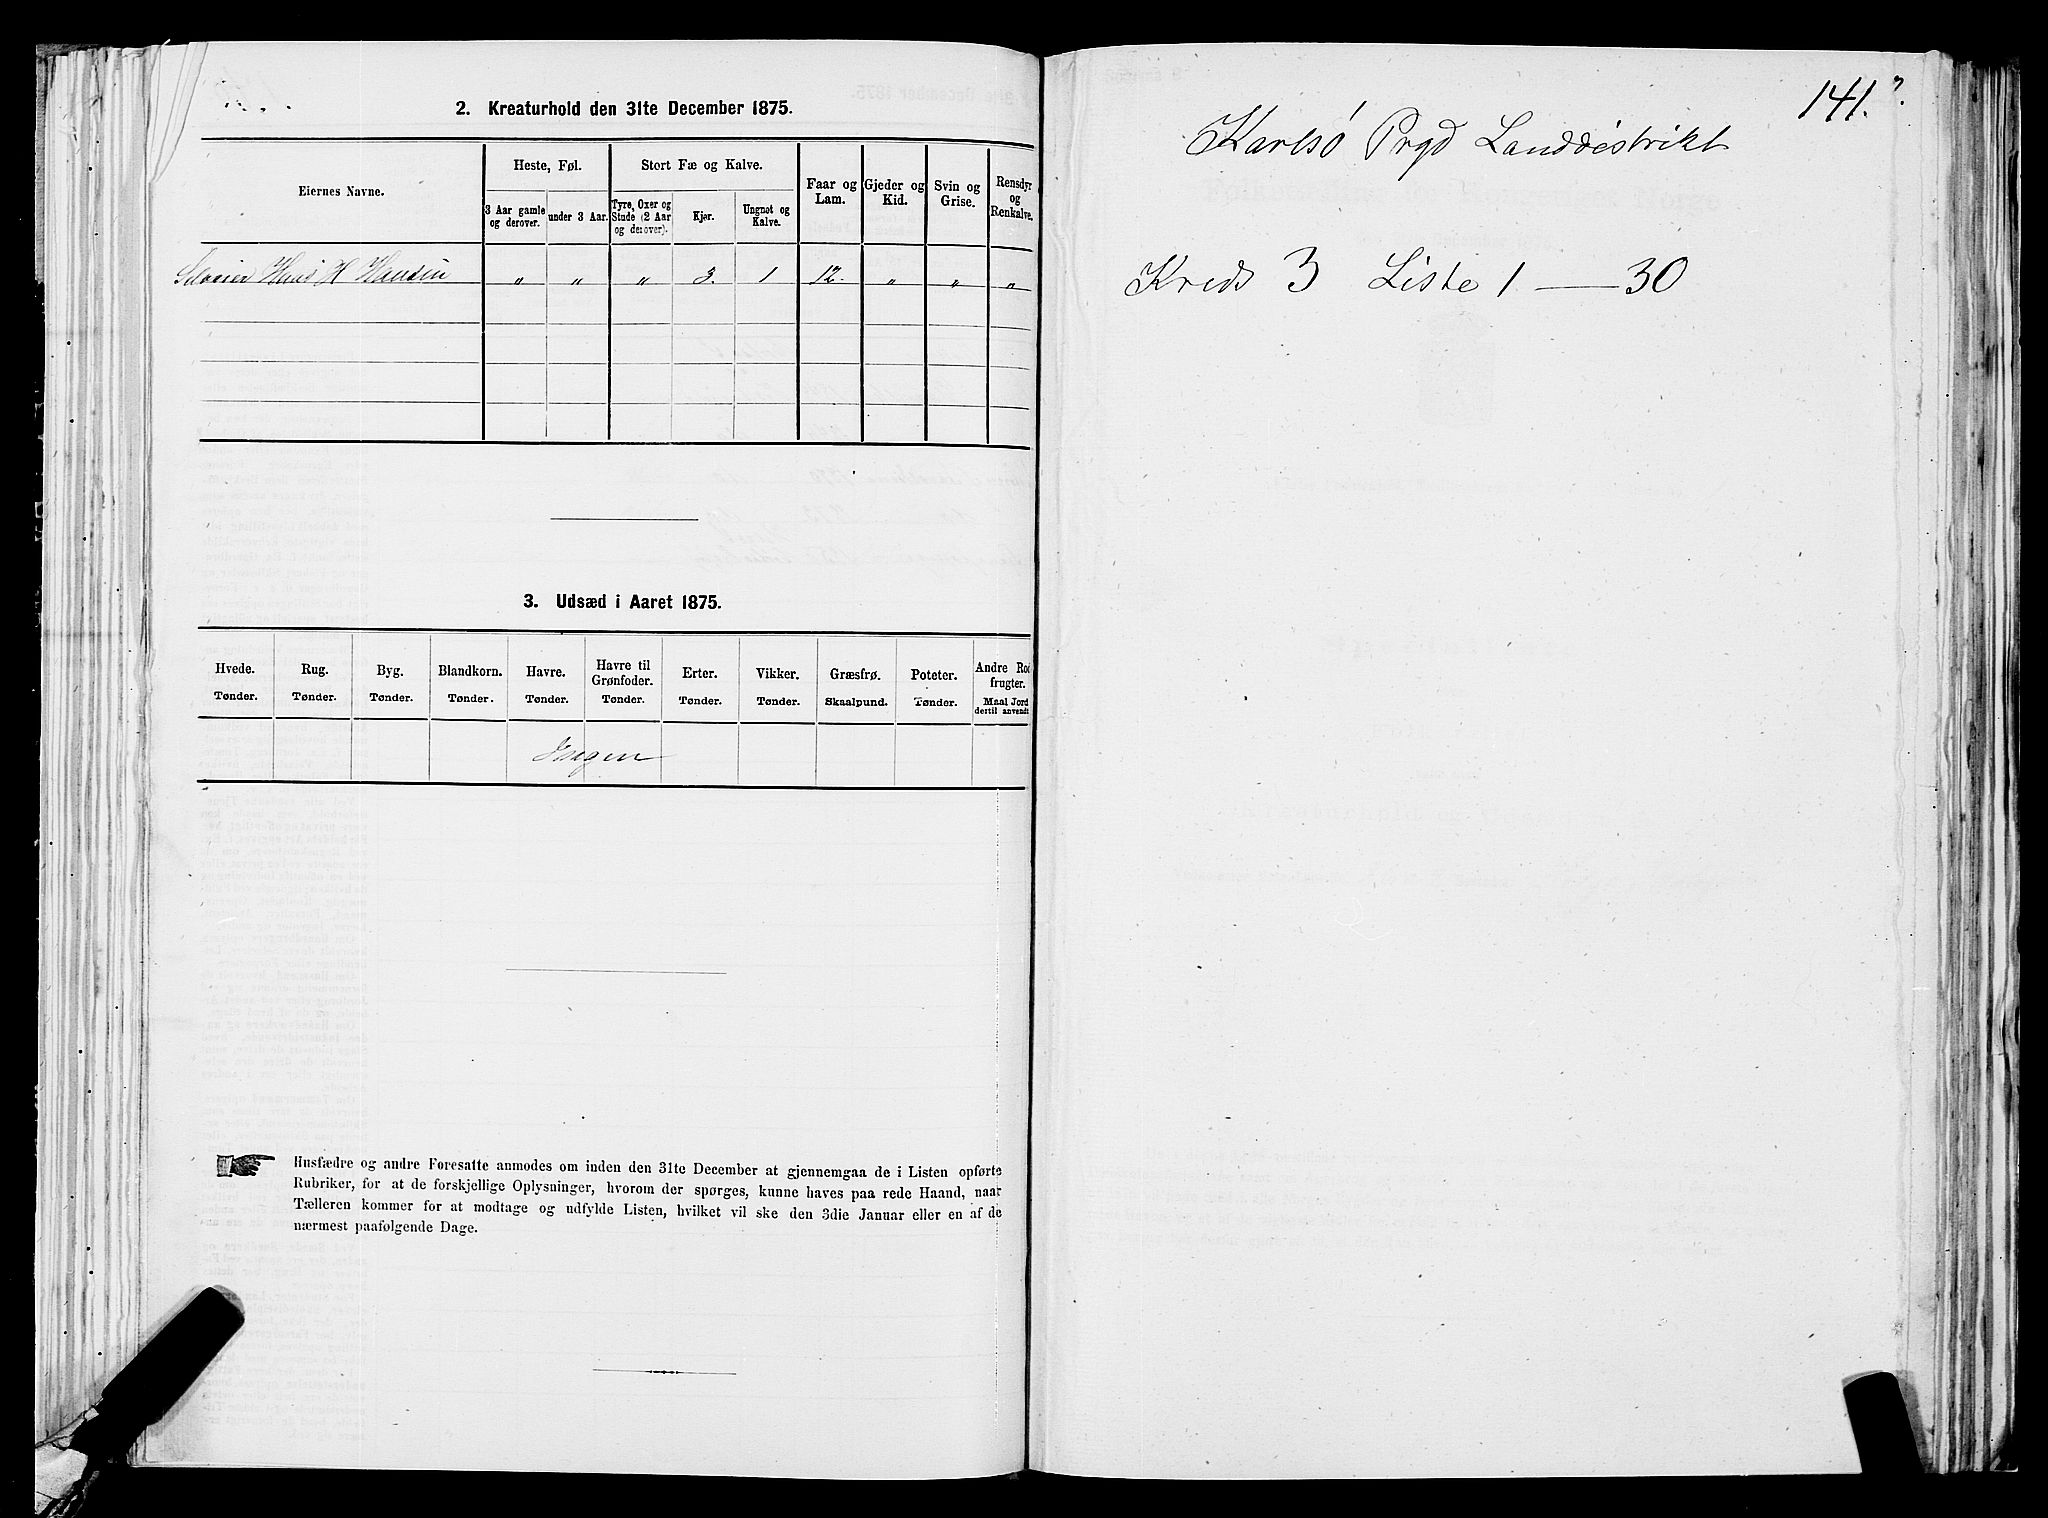 2. Kreaturhold den 31te December 1875.
Eiernes Navne.
Heste, Føl.
Stort Fæ og Kalve.
Faar og Lam.
Gjeder og Kid.
Svin og Grise.
Rensdyr og Renkalve.
3 Aar gamle og derover.
under 3 Aar.
Tyre, Oxer og Stude (2 Aar og derover).
Kjør.
Ungnøt og Kalve.
Hans H Hansen " " " 3. 1 12. " " "
3. Udsæd i Aaret 1875.
Hvede. Rug. Byg. Blandkorn. Havre. Havre til Grønfoder. Erter. Vikker. Græsfrø. Poteter. Andre Rodfrugter.
Tønder. Tønder. Tønder. Tønder. Tønder. Tønder. Tønder. Tønder. Skaalpund. Tønder. Maal Jord dertil anvendt
Ingen
Husfædre og andre Foresatte anmodes om inden den 31te December at gjennemgaa de i Listen opførte
Rubriker, for at de forskjellige Oplysninger, hvorom der spørges, kunne haves paa rede Haand, naar
Tælleren kommer for at modtage og udfylde Listen, hvilket vil ske den 3die Januar eller en af de
nærmest paafølgende Dage.
141.
Karlsø Prgd Landdistrikt
Kreds 3 Liste 1 — 30